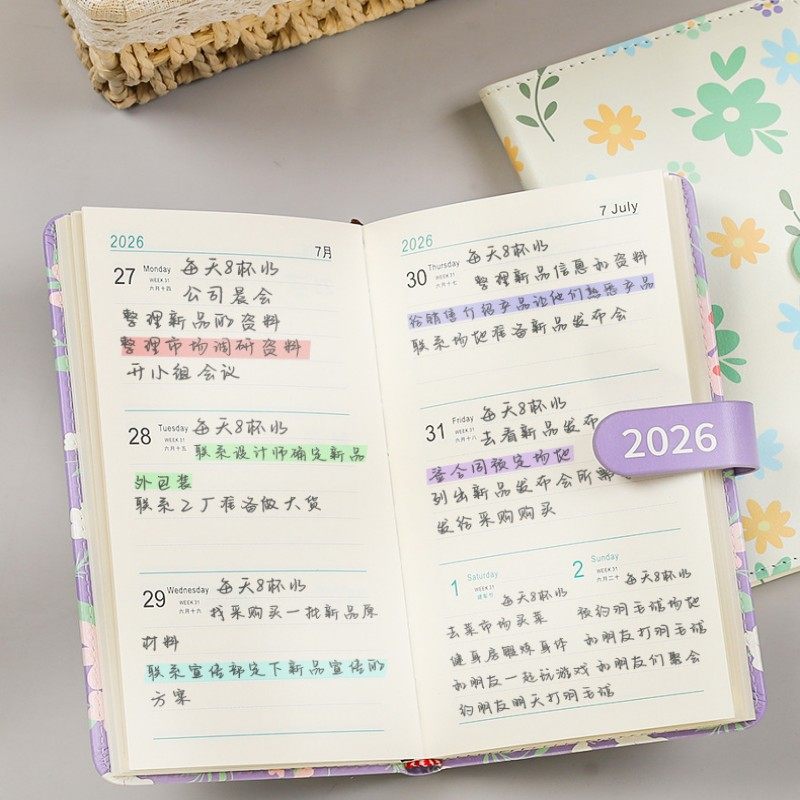 2026
7月
27 Monday 每天8杯水
WEEK 31
六月十四
公司晨会
整理新品的资料
整理市场调研资料
开小组会议
28 Tuesday 每天8杯水
WEEK 31
六月十五
联系设计师确定新品
外包装
联系工厂准备做大货
29 Wednesday 每天8杯水
WEEK 31
六月十六
找采购买一批新品原
材料
联系宣传部定下新品宣传的
方案
2026
7 July
30 Thursday 每天8杯水
WEEK 31
六月十七
整理新品信息和资料
给销售介绍产品让他们熟悉产品
联系场地准备新品发布会
31 Friday 每天8杯水
WEEK 31
六月十八
去看新品发布
签合同预定场地
列出新品发布会所需
发给采购购买
2026
1 Saturday
WEEK 31
建军节
每天8杯水
去菜市场买菜
健身房锻炼身体
和朋友一起玩游戏
约朋友明天打羽毛球
2 Sunday
WEEK 31
六月二十
每天8杯水
预约羽毛球场地
和朋友打羽毛球
和朋友们聚会